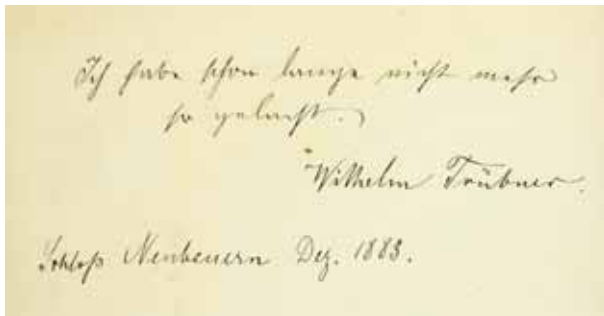 Ich habe schon lange nicht mehr
so gelacht.
Wilhelm Trübner.
Schloß Neubeuern Dez. 1883.